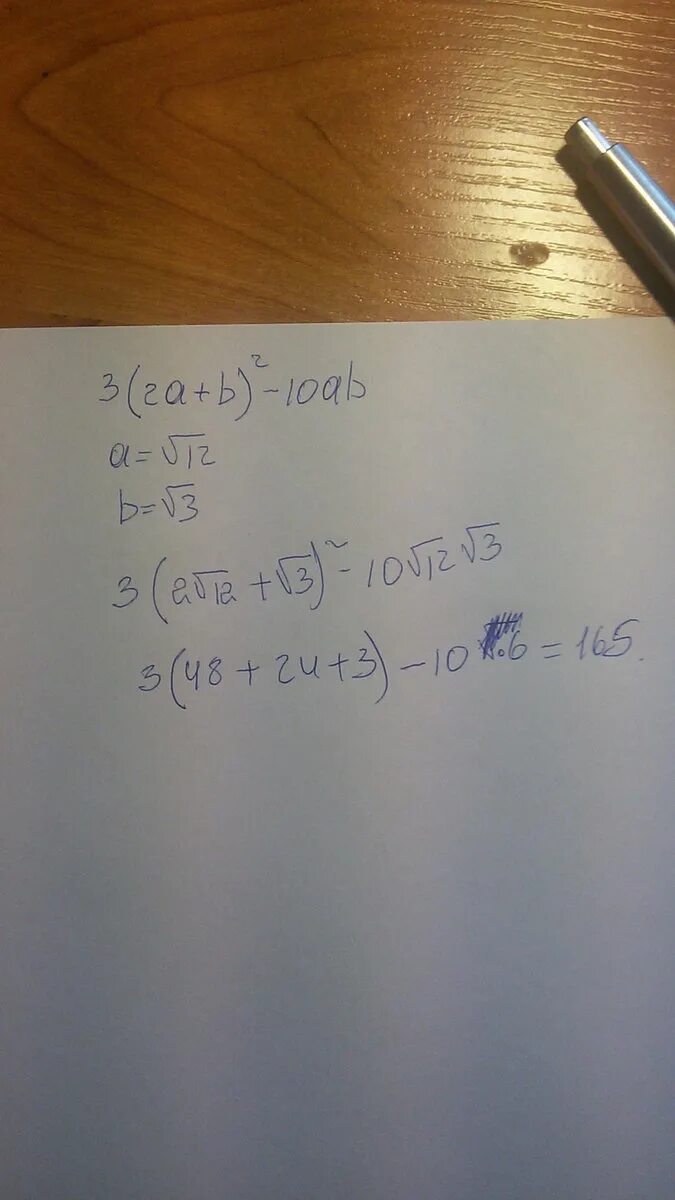 3(2a+b)²-10ab
a=√12
b=√3
3(2√12+√3)²-10√12√3
3(48+24+3)-10·6=165.